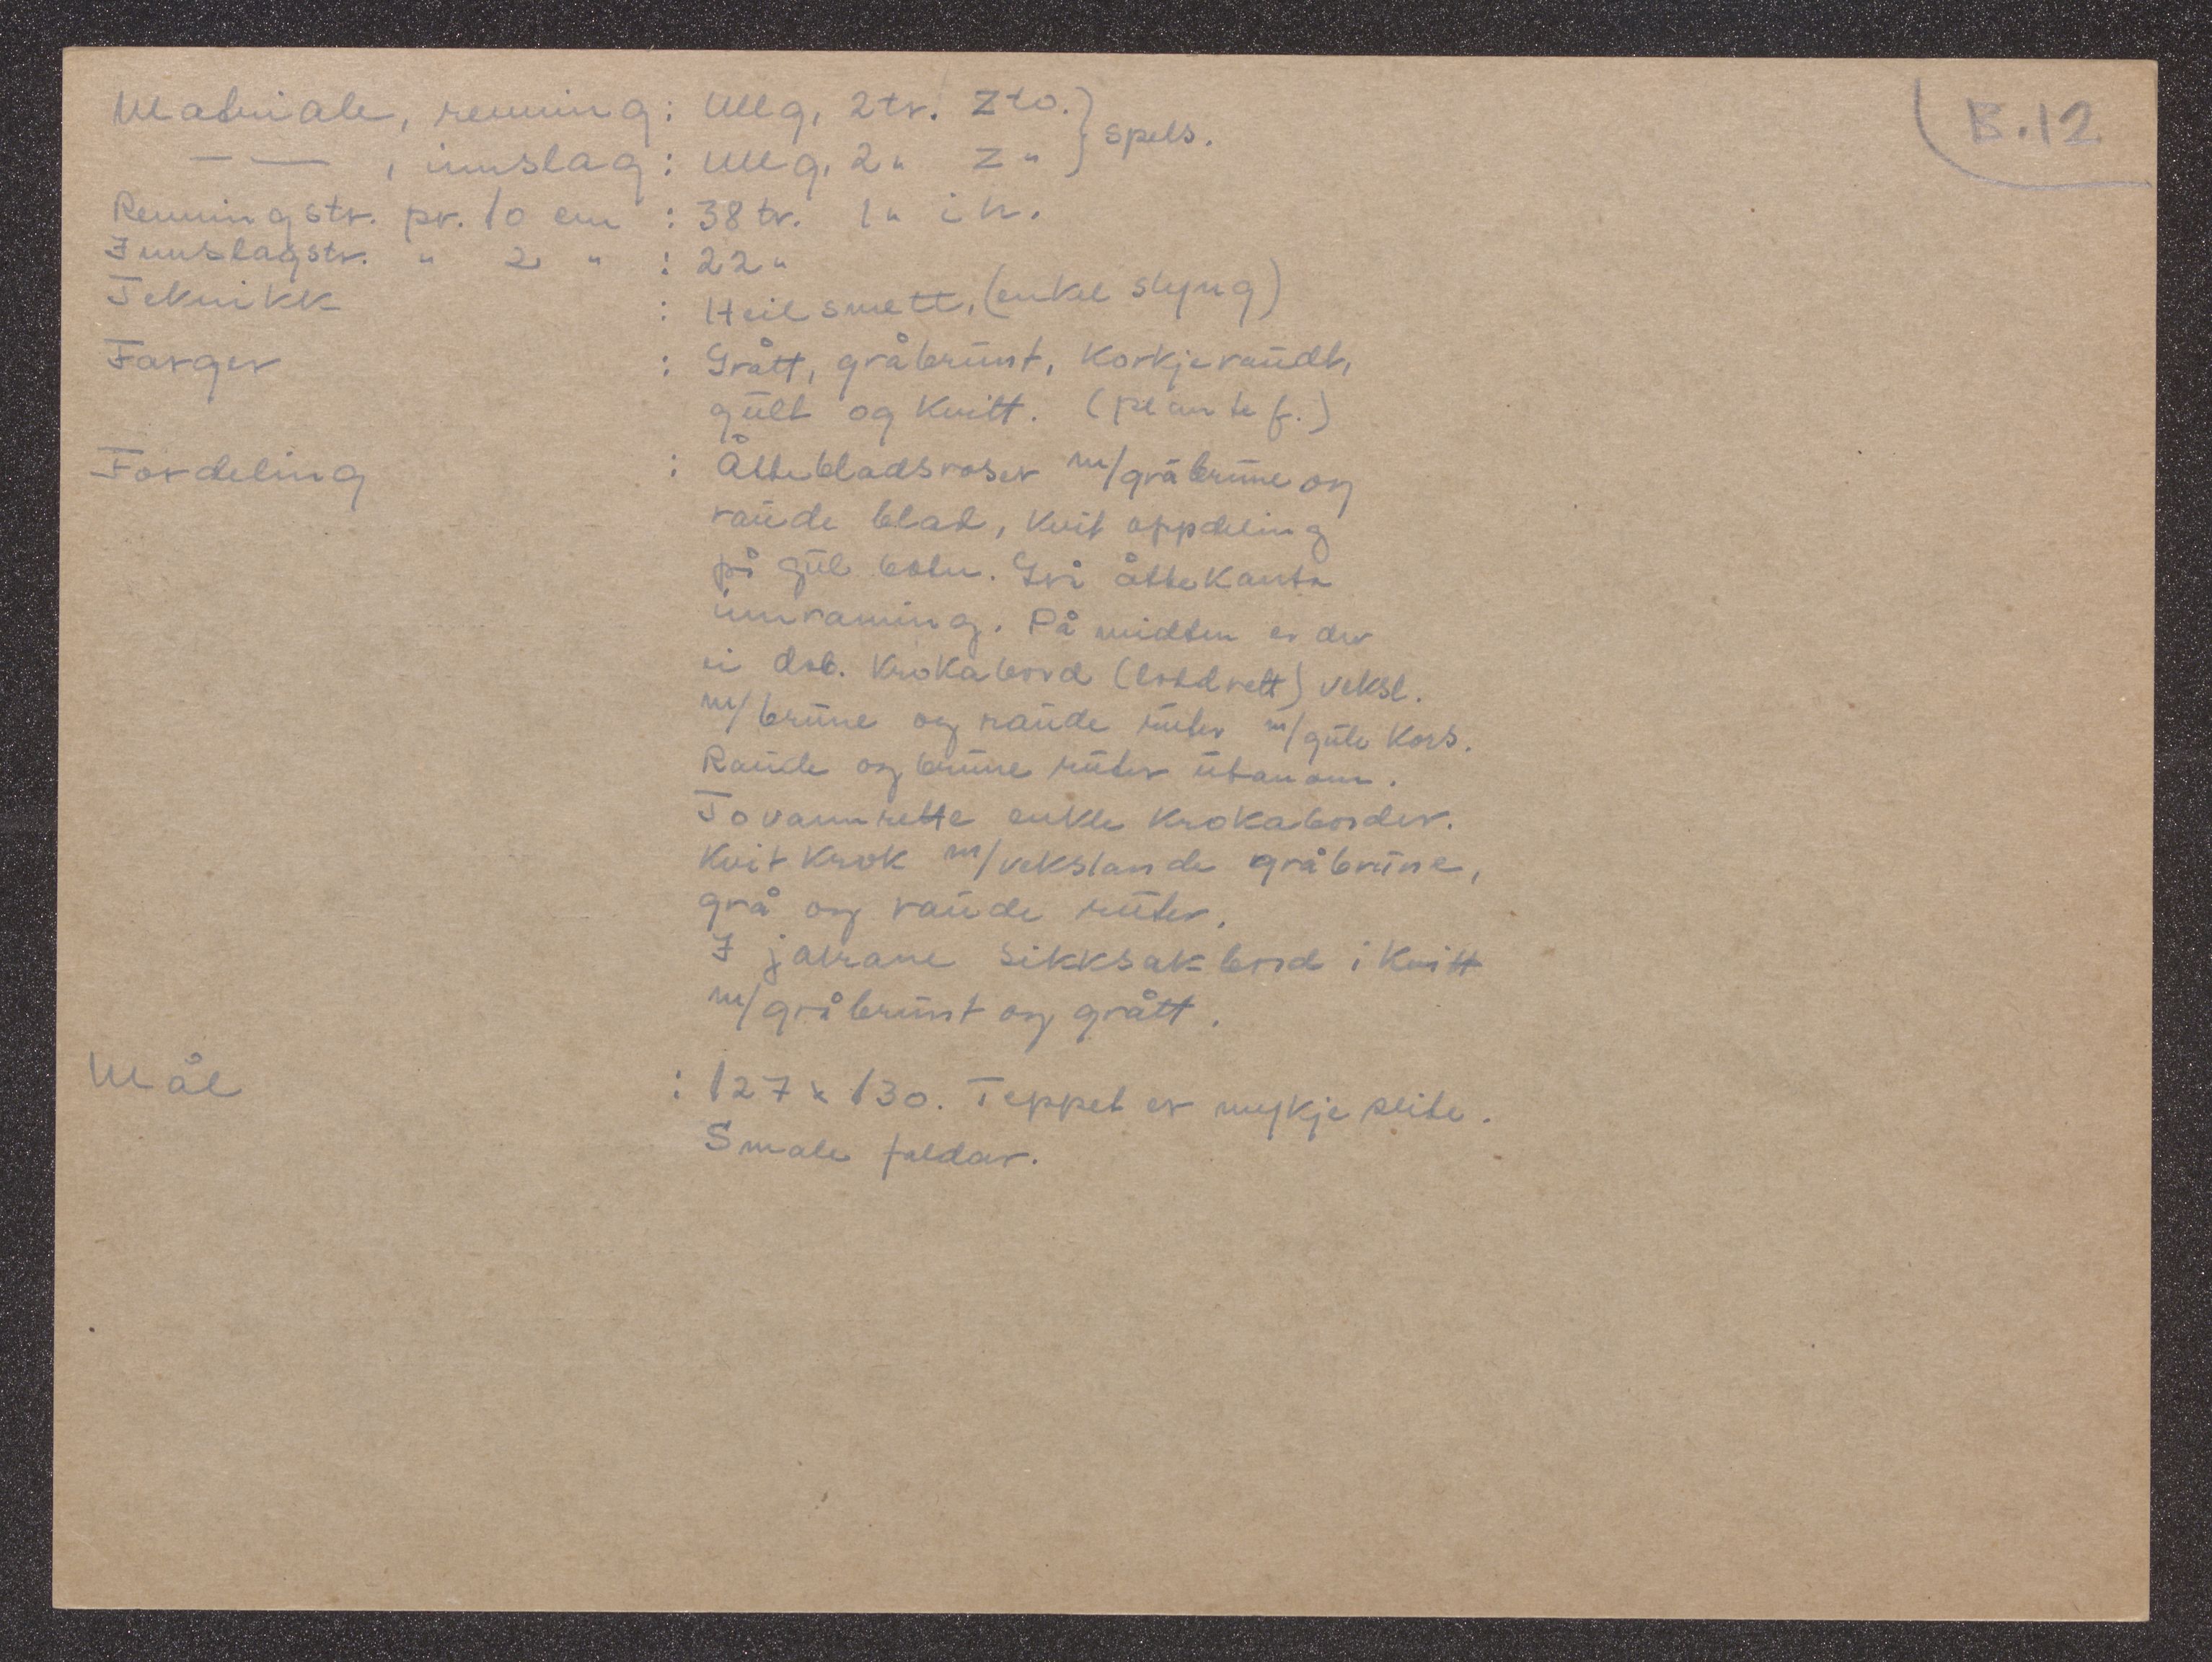 B.12
Materiale, renning: Ullg, 2tr. Zto. } spels.
— — , innslag: Ullg, 2" Z" }
Renningstr. pr. 10 cm : 38 tr. 1" i h.
Innslagstr. " 2 " : 22"
Teknikk : Heilsmett, (enkel slyng)
Farger : Grått, gråbrunt, korkjeraudt,
gult og kvitt. (plantef.)
Fordeling : Åttebladsroser m/gråbrune og
raude blad, kvit oppdeling
på gul botn. Grå åttekanta
innraming. På midten er der
ei dob. krokabord (loddrett) veksl.
m/brune og raude ruter m/gule kors.
Raude og brune ruter utanom.
To vannrette enkle krokaborder.
Kvit krok m/vekslande gråbrune,
grå og raude ruter.
I jarane sikksakbord i kvitt
m/gråbrunt og grått.
Mål : 127 x 130. Teppet er mykje slite.
Smale faldar.